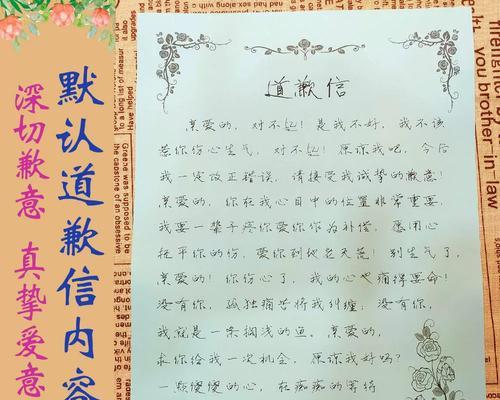 默认道歉信内容
深切歉意 真挚爱意
道歉信
亲爱的，对不起！是我不好，我不该
惹你伤心生气，对不起！原谅我吧，今后
我一定改正错误，请接受我诚挚的歉意！
亲爱的，你在我心目中的位置非常重要，
我要一辈子疼你爱你你为补偿，愿用心
抚平你的伤，爱你到地老天荒！别生气了，
亲爱的！你伤心了，我的心也痛得要命！
没有你，孤独痛苦将我纠缠，没有你，
我就是一条搁浅的鱼。亲爱的，
求你给我一次机会，原谅我好吗？
一颗傻傻的心，在痴痴的等待
you brother in-law
Greene was supposed to be
the capstone of an obsessive